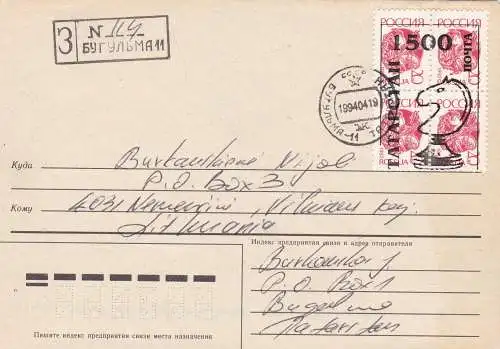 З N 114
БУГУЛЬМА 11
РОССИЯ
1500
ПОЧТА
ТАТАРСТАН
РОССИЯ
БУГУЛЬМА-11
19940419
Куда
P.O. Box 3
Кому
4031 Nemenčinė, Vilniaus raj.
Lithuania
Индекс предприятия связи и адрес отправителя
P.O. Box 1
Bugulma
Tatarstan
Пишите индекс предприятия связи места назначения